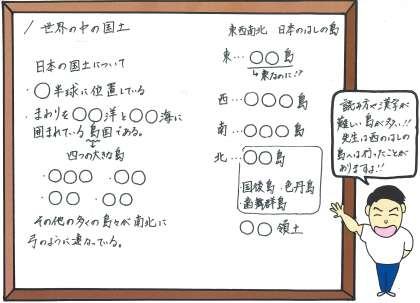 1 世界の中の国土
日本の国土について
・○半球に位置している
・まわりを○○洋と○○海に
囲まれている島国である。
四つの大きな島
・○○○ ・○○
・○○ ・○○
その他の多くの島々が南北に
弓のように連なっている。
東西南北 日本のはしの島
東…○○島
↳東なのに!?
西…○○○島
南…○○○島
北…○○島
・国後島・色丹島
・歯舞群島
○○領土
読み方や漢字が
難しい島が多い!!
先生は西のはしの
島へは行ったことが
ありますよ!!